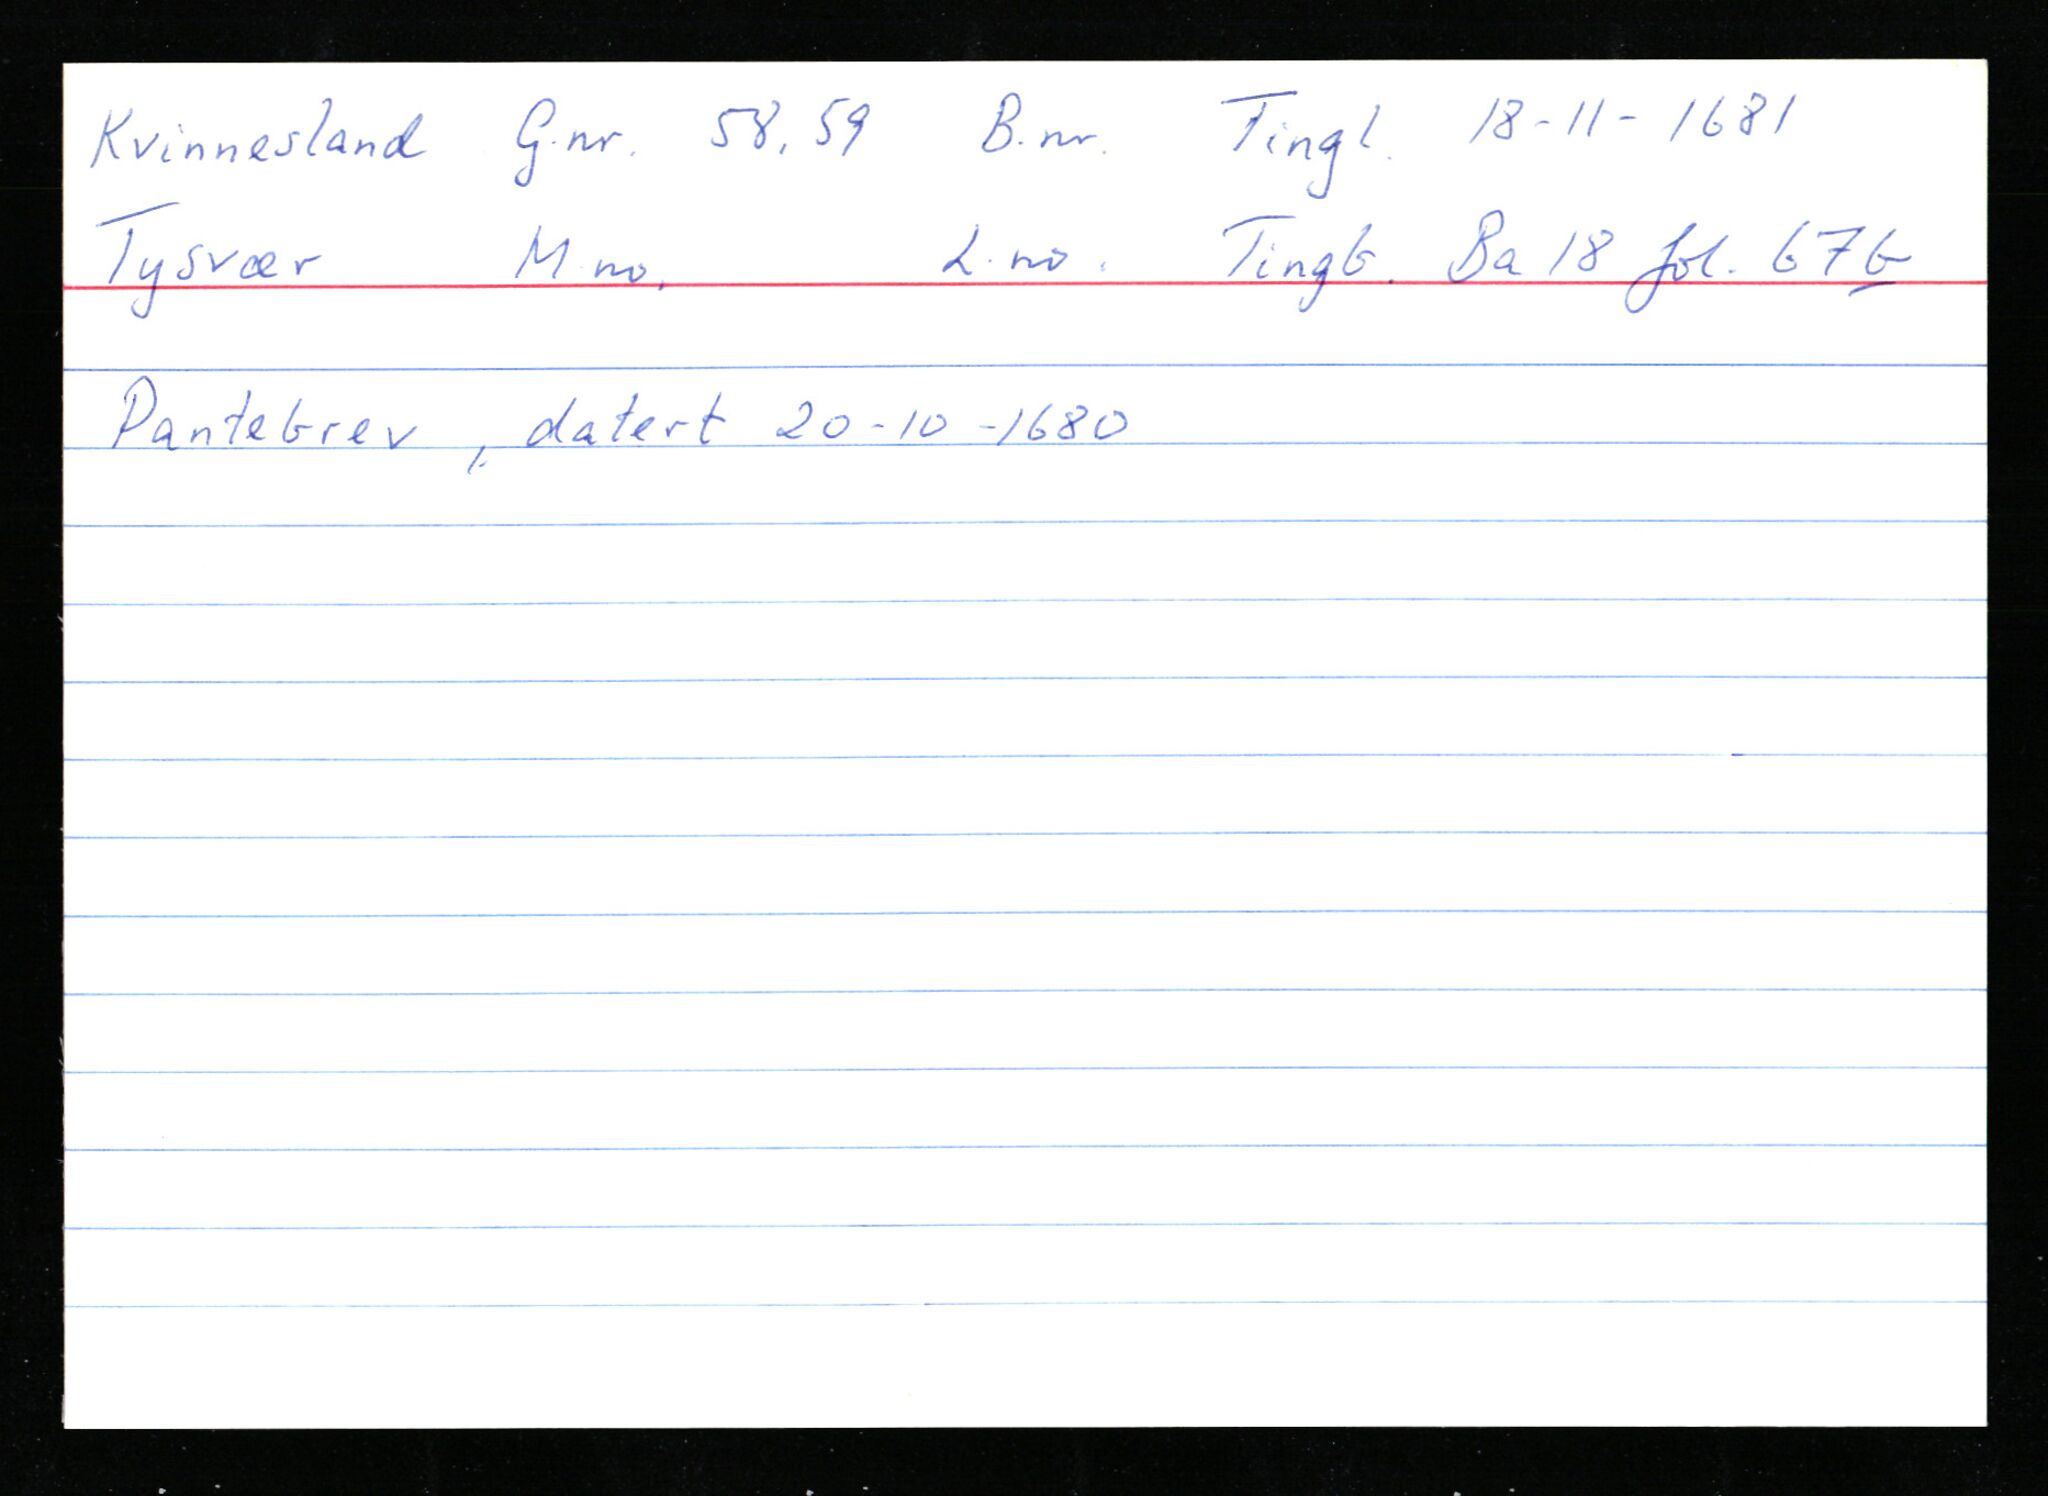 Kvinnesland G.nr. 58, 59 B.nr. Tingl. 18-11-1681
Tysvær M.no. L.no. Tingb. Ba 18 fol. 67b
Pantebrev, datert 20-10-1680